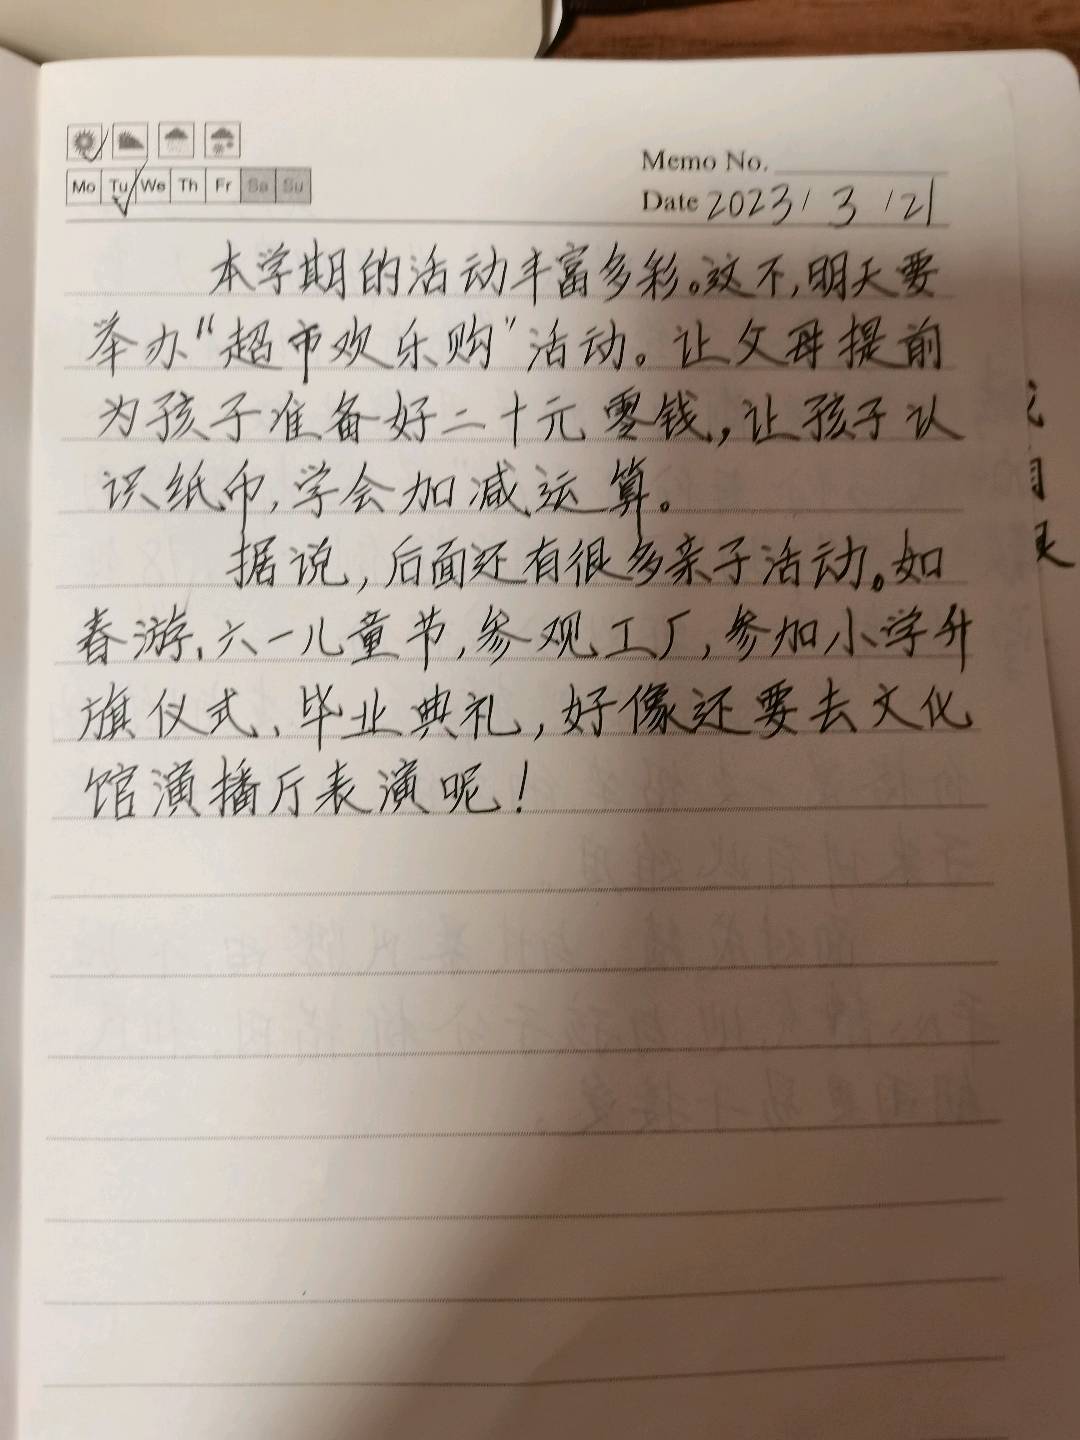 Memo No.
Mo Tu We Th Fr Sa Su
Date 2023/3/21
本学期的活动丰富多彩。这不,明天要
举办“超市欢乐购”活动。让父母提前
为孩子准备好二十元零钱,让孩子认
识纸币,学会加减运算。
据说,后面还有很多亲子活动。如
春游、六一儿童节,参观工厂,参加小学升
旗仪式、毕业典礼,好像还要去文化
馆演播厅表演呢!